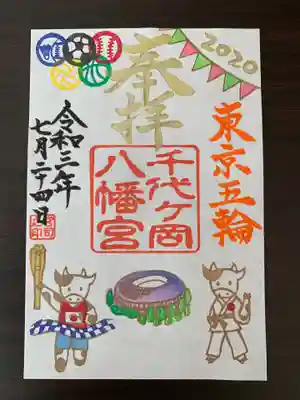 2020
奉拝
東京五輪
千代ヶ岡
八幡宮
令和三年
七月二十四日